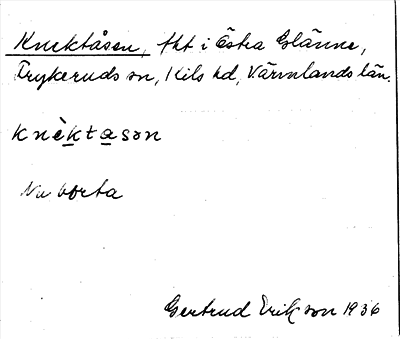 Knektåsen, tht i Östra Glänne,
Trykeruds sn, Kils hd, Värmlands län.
knèktason
Nu borta
Gertrud Erikson 1936